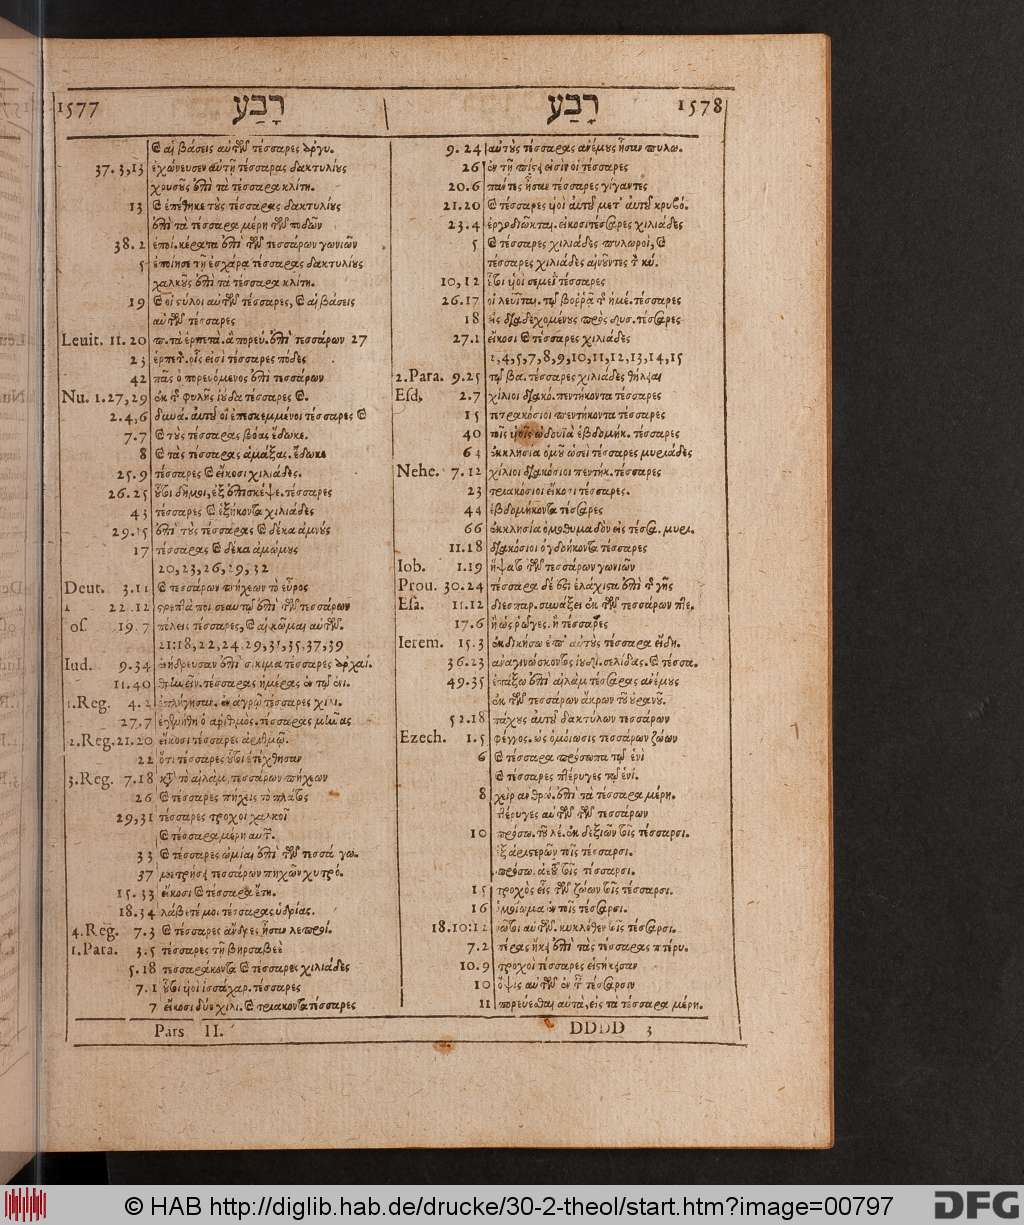 1577 רָבַע
καὶ αἱ βάσεις αὐτῶν τέσσαρες ἀργυ.
37. 3,13 ἐχώνευσεν αὐτῇ τέσσαρας δακτυλίους
χρουσοῦς ἐπὶ τὰ τέσσαρα κλίτη.
13 καὶ ἐπέθηκε τοὺς τέσσαρας δακτυλίους
ἐπὶ τὰ τέσσαρα μέρη τῶν ποδῶν
38. 2 ἐποί. κέρατα ἐπὶ τῶν τεσσάρων γωνιῶν
5 ἐποίησε τῇ ἐσχάρᾳ τέσσαρας δακτυλίους
χαλκοῦς ἐπὶ τὰ τέσσαρα κλίτη.
19 καὶ οἱ στύλοι αὐτῶν τέσσαρες, καὶ αἱ βάσεις
αὐτῶν τέσσαρες
Leuit. 11. 20 π. τὰ ἑρπετὰ. ἃ πορεύ. ἐπὶ τεσσάρων 27
23 ἑρπετ. οἷς εἰσὶ τέσσαρες πόδες
42 πᾶς ὁ πορευόμενος ἐπὶ τεσσάρων
Nu. 1. 27,29 ἐκ τ φυλῆς ἰούδα τέσσαρες καὶ.
2. 4,6 δυνά. αὐτοῦ οἱ ἐπεσκεμμένοι τέσσαρες καὶ
7. 7 καὶ τοὺς τέσσαρας βόας ἔδωκε.
8 καὶ τὰς τέσσαρας ἁμάξας. ἔδωκε
25. 9 τέσσαρες καὶ εἴκοσι χιλιάδες.
26. 25 οὗτοι δῆμοι, ἐξ ἐπισκέψε. τέσσαρες
43 τέσσαρες καὶ ἑξήκοντα χιλιάδες
29. 15 ἐπὶ τοὺς τέσσαρας καὶ δέκα ἀμνοὺς
17 τέσσαρας καὶ δέκα ἀμώμους
20, 23, 26, 29, 32
Deut. 3. 11 καὶ τεσσάρων πήχεων τὸ εὖρος
22. 12 στρεπτὰ ποι σεαυτῷ ἐπὶ τῶν τεσσάρων
os. 19. 7 πόλεις τέσσαρες, καὶ αἱ κῶμαι αὐτῶν.
21: 18, 22, 24. 29, 31, 35, 37, 39
Iud. 9. 34 ἐνήδρευσαν ἐπὶ σικιμα τέσσαρες ἀρχαί.
11. 40 τέσσαρας ἡμέρας ἐν τῷ ἐνι.
1. Reg. 4. 2 ἐπλήγησαν. ἐν ἀγρῷ τέσσαρες χιλι.
27. 7 ἐγενήθη ὁ ἀριθμὸς. τέσσαρας μῆνας
2. Reg. 21. 20 εἴκοσι τέσσαρες ἀριθμῷ.
22 ὅτι τέσσαρες οὗτοι ἐτέχθησαν
3. Reg. 7. 18 κτ τὸ αἰλαμ, τεσσάρων πήχεων
26 καὶ τέσσαρες πήχεις τὸ πλάτος
29, 31 τέσσαρες τροχοὶ χαλκοῖ
καὶ τέσσαρα μέρη αὐτ.
33 καὶ τέσσαρες ὠμίαι ἐπὶ τῶν τεσσά γω.
37 τεσσάρων πηχῶν χυτρό.
15. 33 εἴκοσι καὶ τέσσαρα ἔτη.
18. 34 λάβετέ μοι τέσσαρας ὑδρίας.
4. Reg. 7. 3 καὶ τέσσαρες ἄνδρες ἦσαν λεπροί.
1. Para. 3. 5 τέσσαρες τῇ βηρσαβεὲ
5. 18 τεσσαράκοντα καὶ τέσσαρες χιλιάδες
7. 1 οὗτοι υἱοὶ ἰσσάχαρ. τέσσαρες
7 εἴκοσι δύο χιλι. καὶ τριακοντατέσσαρες
Pars II.
רָבַע 1578
9. 24 αὐτοὺς τέσσαρας ἀνέμους ἦσαν πυλω.
26 ἐν τῇ πίστει εἰσὶν οἱ τέσσαρες
20. 6 πάντες ἦσαν τέσσαρες γίγαντες
21. 20 καὶ τέσσαρες υἱοὶ αὐτοῦ μετ' αὐτοῦ κρυβό.
23. 4 ἐργοδιῶκται. εἰκοσιτέσσαρες χιλιάδες
5 καὶ τέσσαρες χιλιάδες πυλωροὶ, καὶ
τέσσαρες χιλιάδες αἰνοῦντες τ κυ.
10, 12 οὗτοι υἱοὶ σεμεῒ τέσσαρες
26. 17 οἱ λευῖται. τῷ βορρᾷ τ ἡμέ. τέσσαρες
18 εἰς διαδεχομένους πρὸς δυσ. τέσσαρες
27. 1 εἴκοσι καὶ τέσσαρες χιλιάδες
2, 4, 5, 7, 8, 9, 10, 11, 12, 13, 14, 15
2. Para. 9. 25 τῷ βα. τέσσαρες χιλιάδες θήλειαι
Esd. 2. 7 χίλιοι διακό. πεντήκοντα τέσσαρες
15 πετρακόσιοι πεντήκοντα τέσσαρες
40 τοῖς υἱοῖς ὠδουϊὰ ἑβδομήκ. τέσσαρες
64 ἐκκλησία ὁμοῦ ὡσεὶ τέσσαρες μυριάδες
Nehe. 7. 12 χίλιοι διακόσιοι πεντήκ. τέσσαρες
23 τριακόσιοι εἴκοσι τέσσαρες.
44 ἑβδομήκοντα τέσσαρες
66 ἐκκλησία ὁμοθυμαδὸν εἰς τέσσα. μυρι.
11. 18 διακόσιοι ὀγδοήκοντα τέσσαρες
Iob. 1. 19 ἥψατο τῶν τεσσάρων γωνιῶν
Prou. 30. 24 τέσσαρα δέ ἐστι ἐλάχιστα ἐπὶ τ γῆς
Esa. 11. 12 διεσπαρ. συνάξει ἐκ τῶν τεσσάρων πτε.
17. 6 ἢ ὡς ῥῶγες. ἢ τέσσαρες
Ierem. 15. 3 ἐκδικήσω ἐπ' αὐτοὺς τέσσαρα εἴδη.
36. 23 ἀναγινώσκοντος ἰουδὶ. σελίδας. καὶ τέσσα.
49. 35 ἐπάξω ἐπὶ αἰλὰμ τέσσαρας ἀνέμους
ἐκ τῶν τεσσάρων ἄκρων τοῦ οὐρανοῦ.
52. 18 πάχους αὐτοῦ δακτύλων τεσσάρων
Ezech. 1. 5 φέγγος. ὡς ὁμοίωσις τεσσάρων ζώων
6 καὶ τέσσαρα πρόσωπα τῷ ἑνὶ
καὶ τέσσαρες πτέρυγες τῷ ἑνί.
8 χεὶρ ἀνθρώ. ἐπὶ τὰ τέσσαρα μέρη.
πτέρυγες αὐτῶν τῶν τεσσάρων
10 πρόσω. τοῦ λέ. ἐκ δεξιῶν τοῖς τέσσαρσι.
ἐξ ἀριστερῶν τοῖς τέσσαρσι.
πρόσω. ἀετοῦ τοῖς τέσσαρσι.
15 τροχὸς εἷς τῶν ζώων τοῖς τέσσαρσι.
16 ὁμοίωμα ἐν τοῖς τέσσαρσι.
18. 10: 12 νῶτοι αὐτῶν. κυκλόθεν τοῖς τέσσαρσι.
7. 2 πέρας ἥκει ἐπὶ τὰς τέσσαρας πτέρυ.
10. 9 τροχοὶ τέσσαρες εἱστήκεσαν
10 ὄψις αὐτῶν ἐν τ τέσσαρσιν
11 πορεύεσθαι αὐτὰ, εἰς τὰ τέσσαρα μέρη.
DDDD 3
© HAB http://diglib.hab.de/drucke/30-2-theol/start.htm?image=00797
DFG